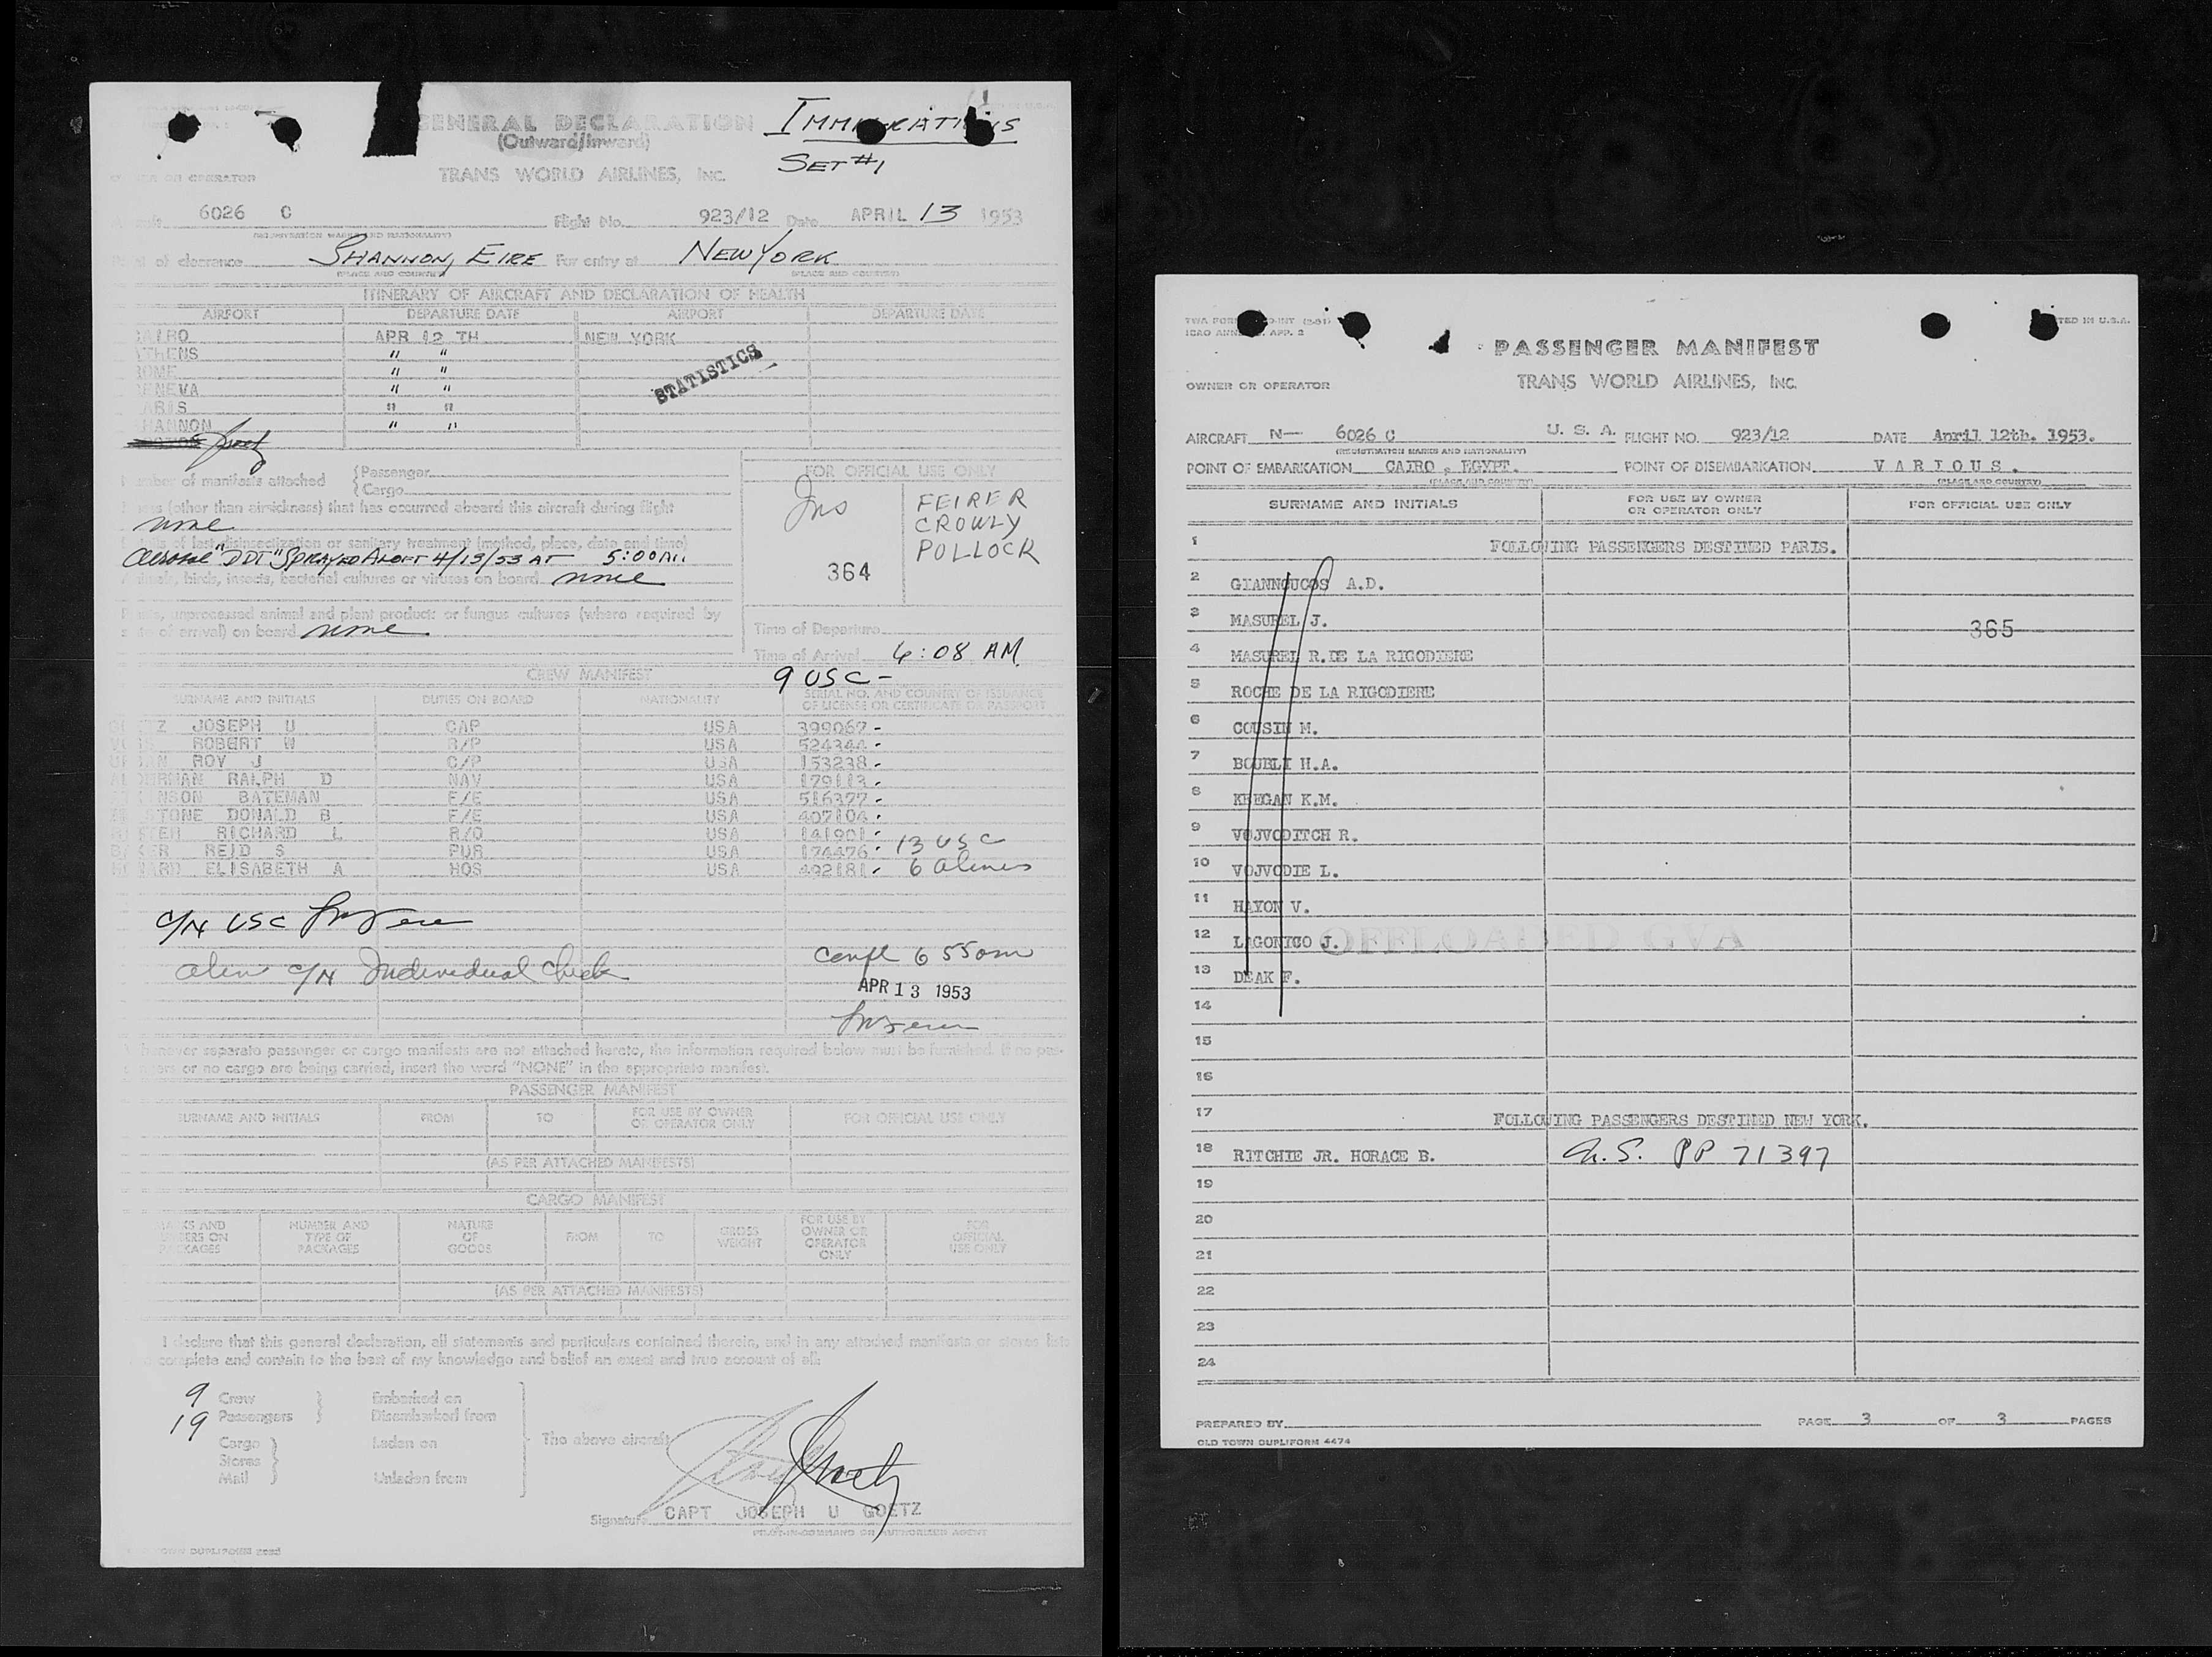 GENERAL DECLARATION
(Outward/Inward)
IMMIGRATIONS
SET #1
OR OPERATOR
TRANS WORLD AIRLINES, INC.
6026 C Flight No. 923/12 Date APRIL 13 1953
(REGISTRATION MARKS AND NATIONALITY)
of clearance SHANNON, EIRE For entry at NEW YORK
(PLACE AND COUNTRY) (PLACE AND COUNTRY)
ITINERARY OF AIRCRAFT AND DECLARATION OF HEALTH
AIRPORT DEPARTURE DATE AIRPORT DEPARTURE DATE
CAIRO APR 12 TH NEW YORK
ATHENS " "
ROME " "
GENEVA " "
PARIS " "
SHANNON " "
STATISTICS
Number of manifests attached {Passenger
{Cargo
FOR OFFICIAL USE ONLY
Ins
FEIRER
CROWLY
POLLOCK
364
(other than airsickness) that has occurred aboard this aircraft during flight
none
of last disinsectization or sanitary treatment (method, place, date and time)
Aerosol "DDT" SPRAYED ALOFT 4/13/53 AT 5:00 AM
birds, insects, bacterial cultures or viruses on board none
unprocessed animal and plant products or fungus cultures (where required by
of arrival) on board none
Time of Departure
Time of Arrival 6:08 AM
CREW MANIFEST
9 USC -
SURNAME AND INITIALS DUTIES ON BOARD NATIONALITY SERIAL NO. AND COUNTRY OF ISSUANCE
OF LICENSE OR CERTIFICATE OR PASSPORT
JOSEPH U CAP USA 399067 -
ROBERT W R/P USA 524344 -
ROY J C/P USA 153238 -
RALPH D NAV USA 179113 -
BATEMAN F/E USA 516377 -
STONE DONALD B F/E USA 407104 -
RICHARD L R/O USA 141901 -
REID S PUR USA 174476 - 13 USC
ELISABETH A HOS USA 492181 - 6 aliens
C/N USC
alien C/N Individual Check
Compl 6 55am
APR 13 1953
separate passenger or cargo manifests are not attached hereto, the information required below must be furnished. If no pas-
or no cargo are being carried, insert the word "NONE" in the appropriate manifest.
PASSENGER MANIFEST
SURNAME AND INITIALS FROM TO FOR USE BY OWNER OR OPERATOR ONLY FOR OFFICIAL USE ONLY
(AS PER ATTACHED MANIFESTS)
CARGO MANIFEST
MARKS AND NUMBERS ON PACKAGES NUMBER AND TYPE OF PACKAGES NATURE OF GOODS FROM TO GROSS WEIGHT FOR USE BY OWNER OR OPERATOR ONLY FOR OFFICIAL USE ONLY
(AS PER ATTACHED MANIFESTS)
I declare that this general declaration, all statements and particulars contained therein, and in any attached manifests or stores lists
complete and contain to the best of my knowledge and belief an exact and true account of all:
9 Crew } Embarked on
19 Passengers Disembarked from
Cargo } Laden on
Stores
Mail Unladen from
The above aircraft
Signature CAPT JOSEPH U GOETZ
PILOT-IN-COMMAND OR AUTHORIZED AGENT
PASSENGER MANIFEST
OWNER OR OPERATOR TRANS WORLD AIRLINES, INC.
AIRCRAFT N— 6026 C U. S. A. FLIGHT NO. 923/12 DATE April 12th. 1953.
(REGISTRATION MARKS AND NATIONALITY)
POINT OF EMBARKATION CAIRO , EGYPT. POINT OF DISEMBARKATION V A R I O U S .
(PLACE AND COUNTRY) (PLACE AND COUNTRY)
SURNAME AND INITIALS FOR USE BY OWNER OR OPERATOR ONLY FOR OFFICIAL USE ONLY
1 FOLLOWING PASSENGERS DESTINED PARIS.
2 GIANNOUCOS A.D.
3 MASUREL J.
365
4 MASUREL R.DE LA RIGODIERE
5 ROCHE DE LA RIGODIERE
6 COUSIN M.
7 BOUBLI H.A.
8 KEEGAN K.M.
9 VOJVODITCH R.
10 VOJVODIE L.
11 HAYON V.
12 LAGONICO J.
OFFLOADED GVA
13 DEAK F.
14
15
16
17 FOLLOWING PASSENGERS DESTINED NEW YORK.
18 RITCHIE JR. HORACE B. PP 71397
19
20
21
22
23
24
PREPARED BY PAGE 3 OF 3 PAGES
OLD TOWN DUPLIFORM 4474